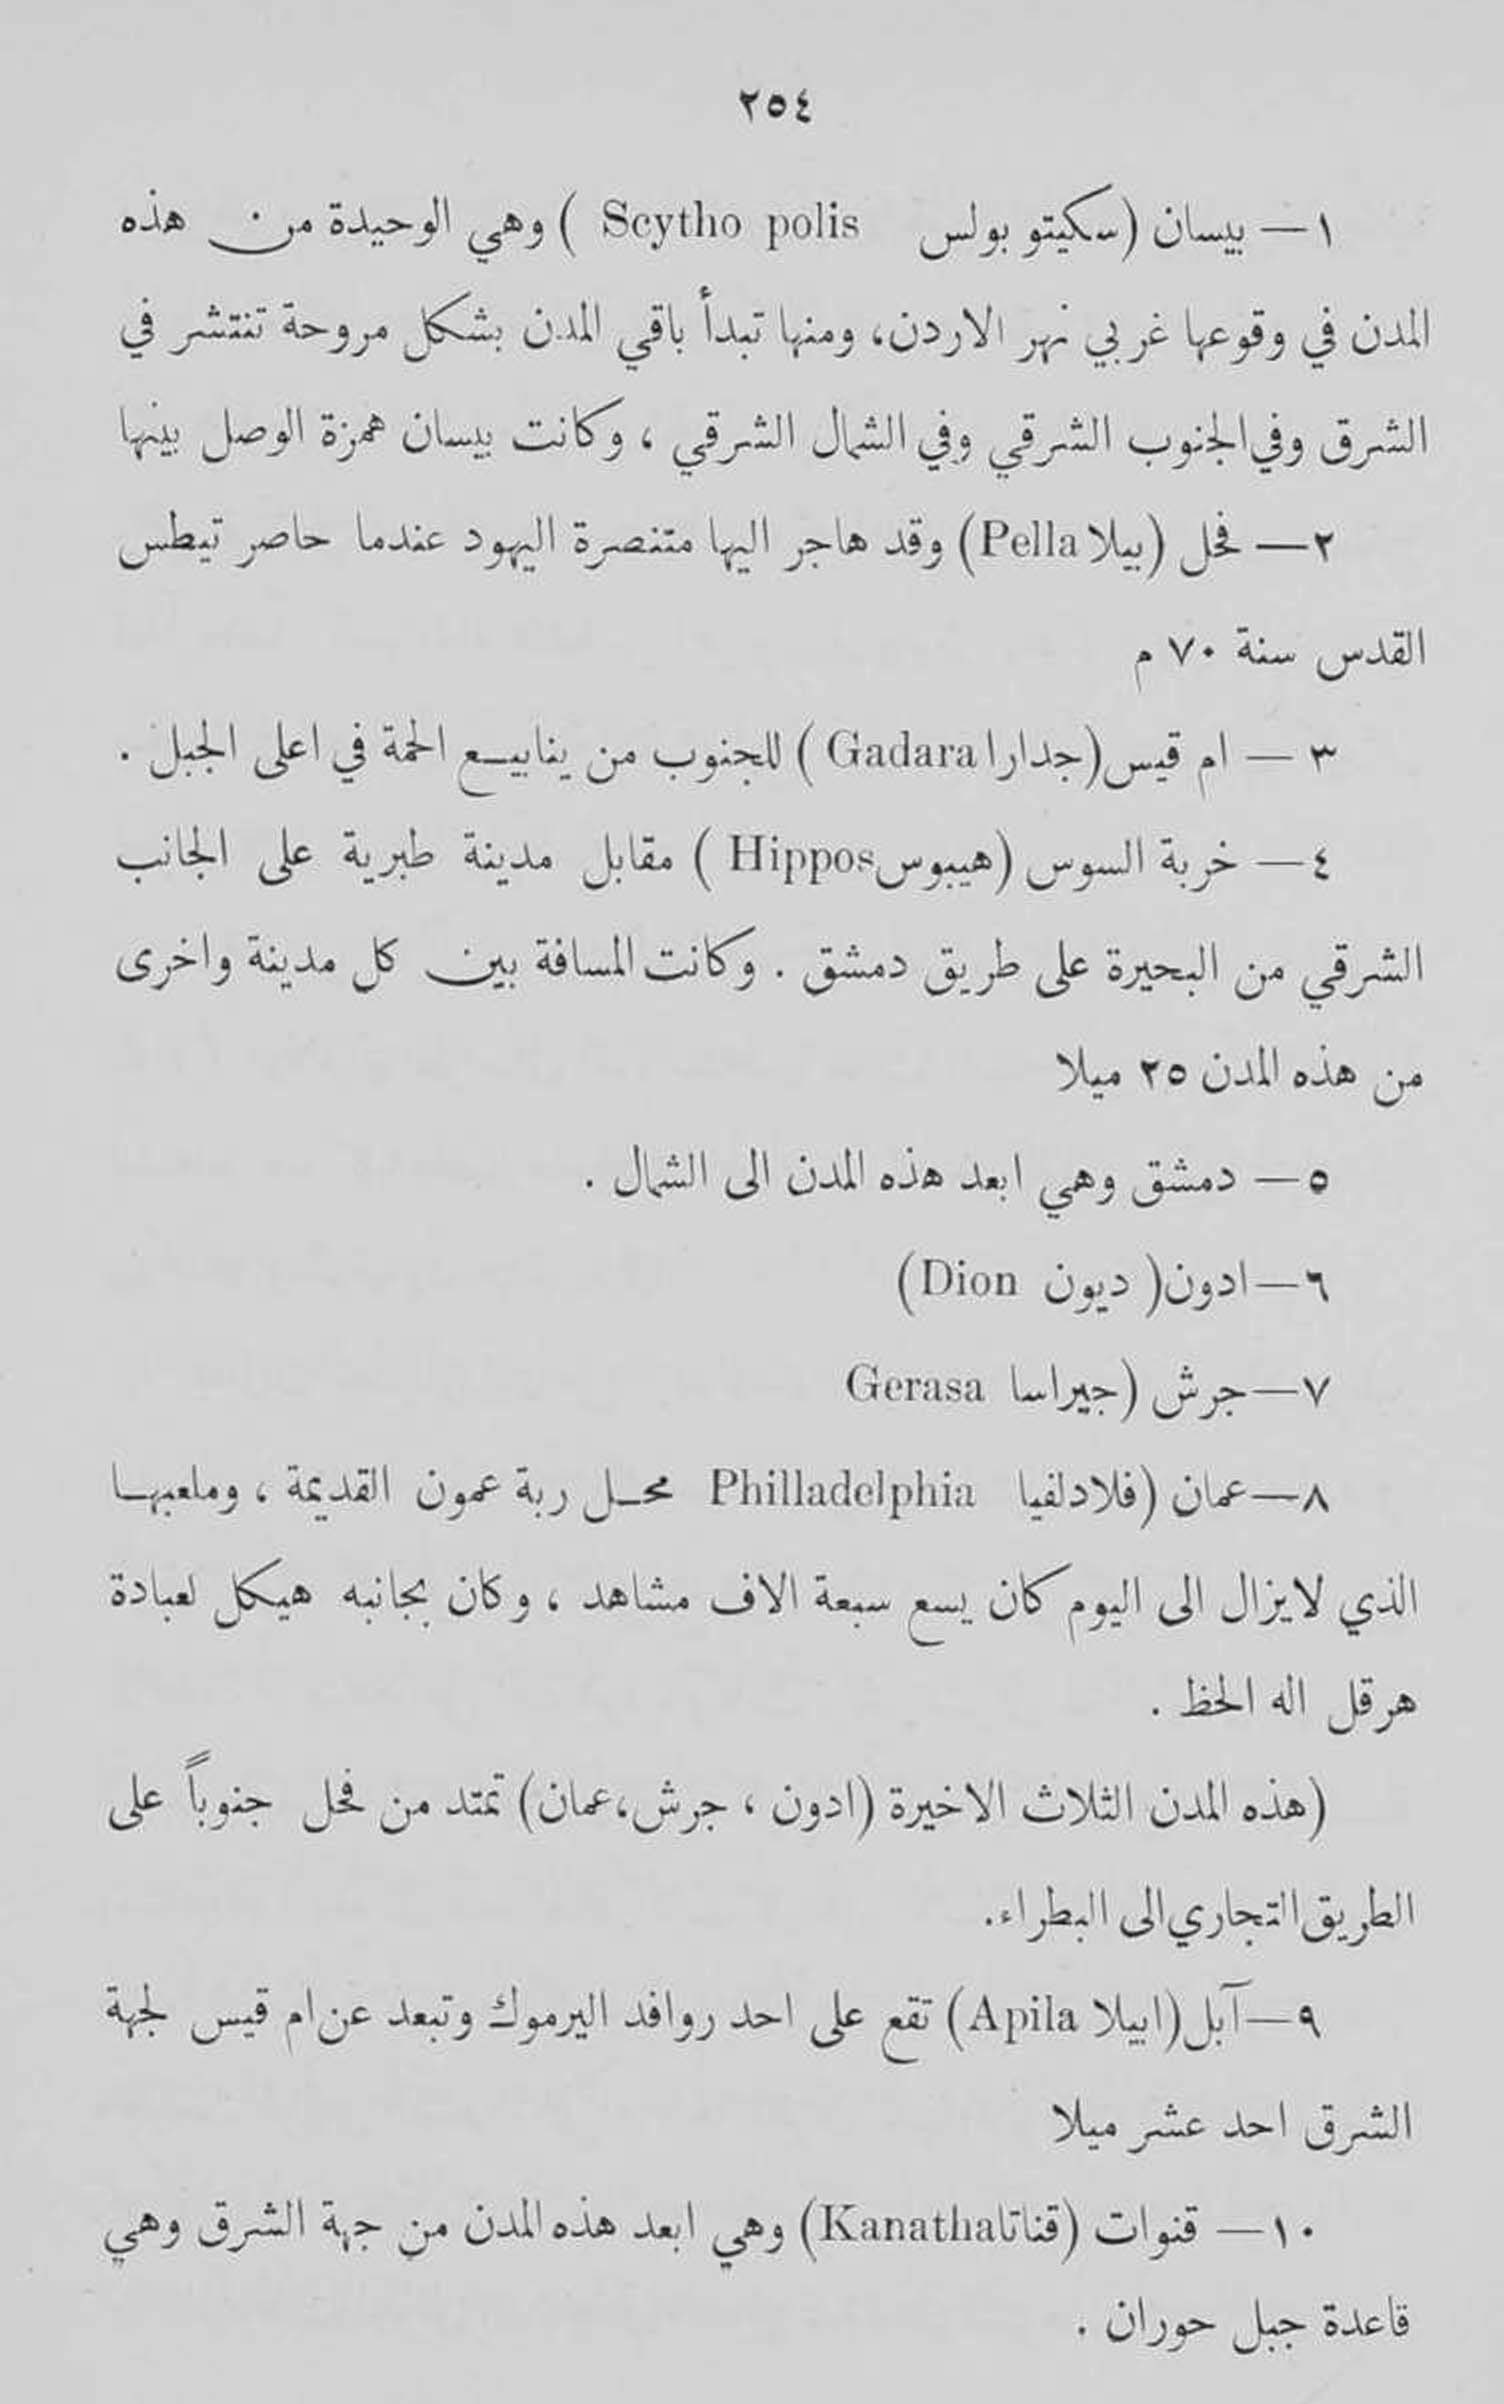 ٢٥٤
١ — بيسان (سكيتو بولس Scytho polis ) وهي الوحيدة من هذه
المدن في وقوعها غربي نهر الاردن، ومنها تبدأ باقي المدن بشكل مروحة تنتشر في
الشرق وفي الجنوب الشرقي وفي الشمال الشرقي ، وكانت بيسان همزة الوصل بينها
٢ — فحل (بيلا Pella) وقد هاجر اليها متنصرة اليهود عندما حاصر تيطس
القدس سنة ٧٠ م
٣ — ام قيس (جدارا Gadara ) للجنوب من ينابيع الحمة في اعلى الجبل .
٤ — خربة السوس (هيبوس Hippos ) مقابل مدينة طبرية على الجانب
الشرقي من البحيرة على طريق دمشق . وكانت المسافة بين كل مدينة واخرى
من هذه المدن ٢٥ ميلا
٥ — دمشق وهي ابعد هذه المدن الى الشمال .
٦ — ادون( ديون Dion)
٧ — جرش (جيراسا Gerasa
٨ — عمان (فلادلفيا Philladelphia محل ربة عمون القديمة ، وملعبها
الذي لايزال الى اليوم كان يسع سبعة الاف مشاهد ، وكان بجانبه هيكل لعبادة
هرقل اله الحظ .
(هذه المدن الثلاث الاخيرة (ادون ، جرش، عمان) تمتد من فحل جنوباً على
الطريق التجاري الى البطراء.
٩ — آبل (ابيلا Apila) تقع على احد روافد اليرموك وتبعد عن ام قيس لجهة
الشرق احد عشر ميلا
١٠ — قنوات (قناتا Kanatha) وهي ابعد هذه المدن من جهة الشرق وهي
قاعدة جبل حوران .